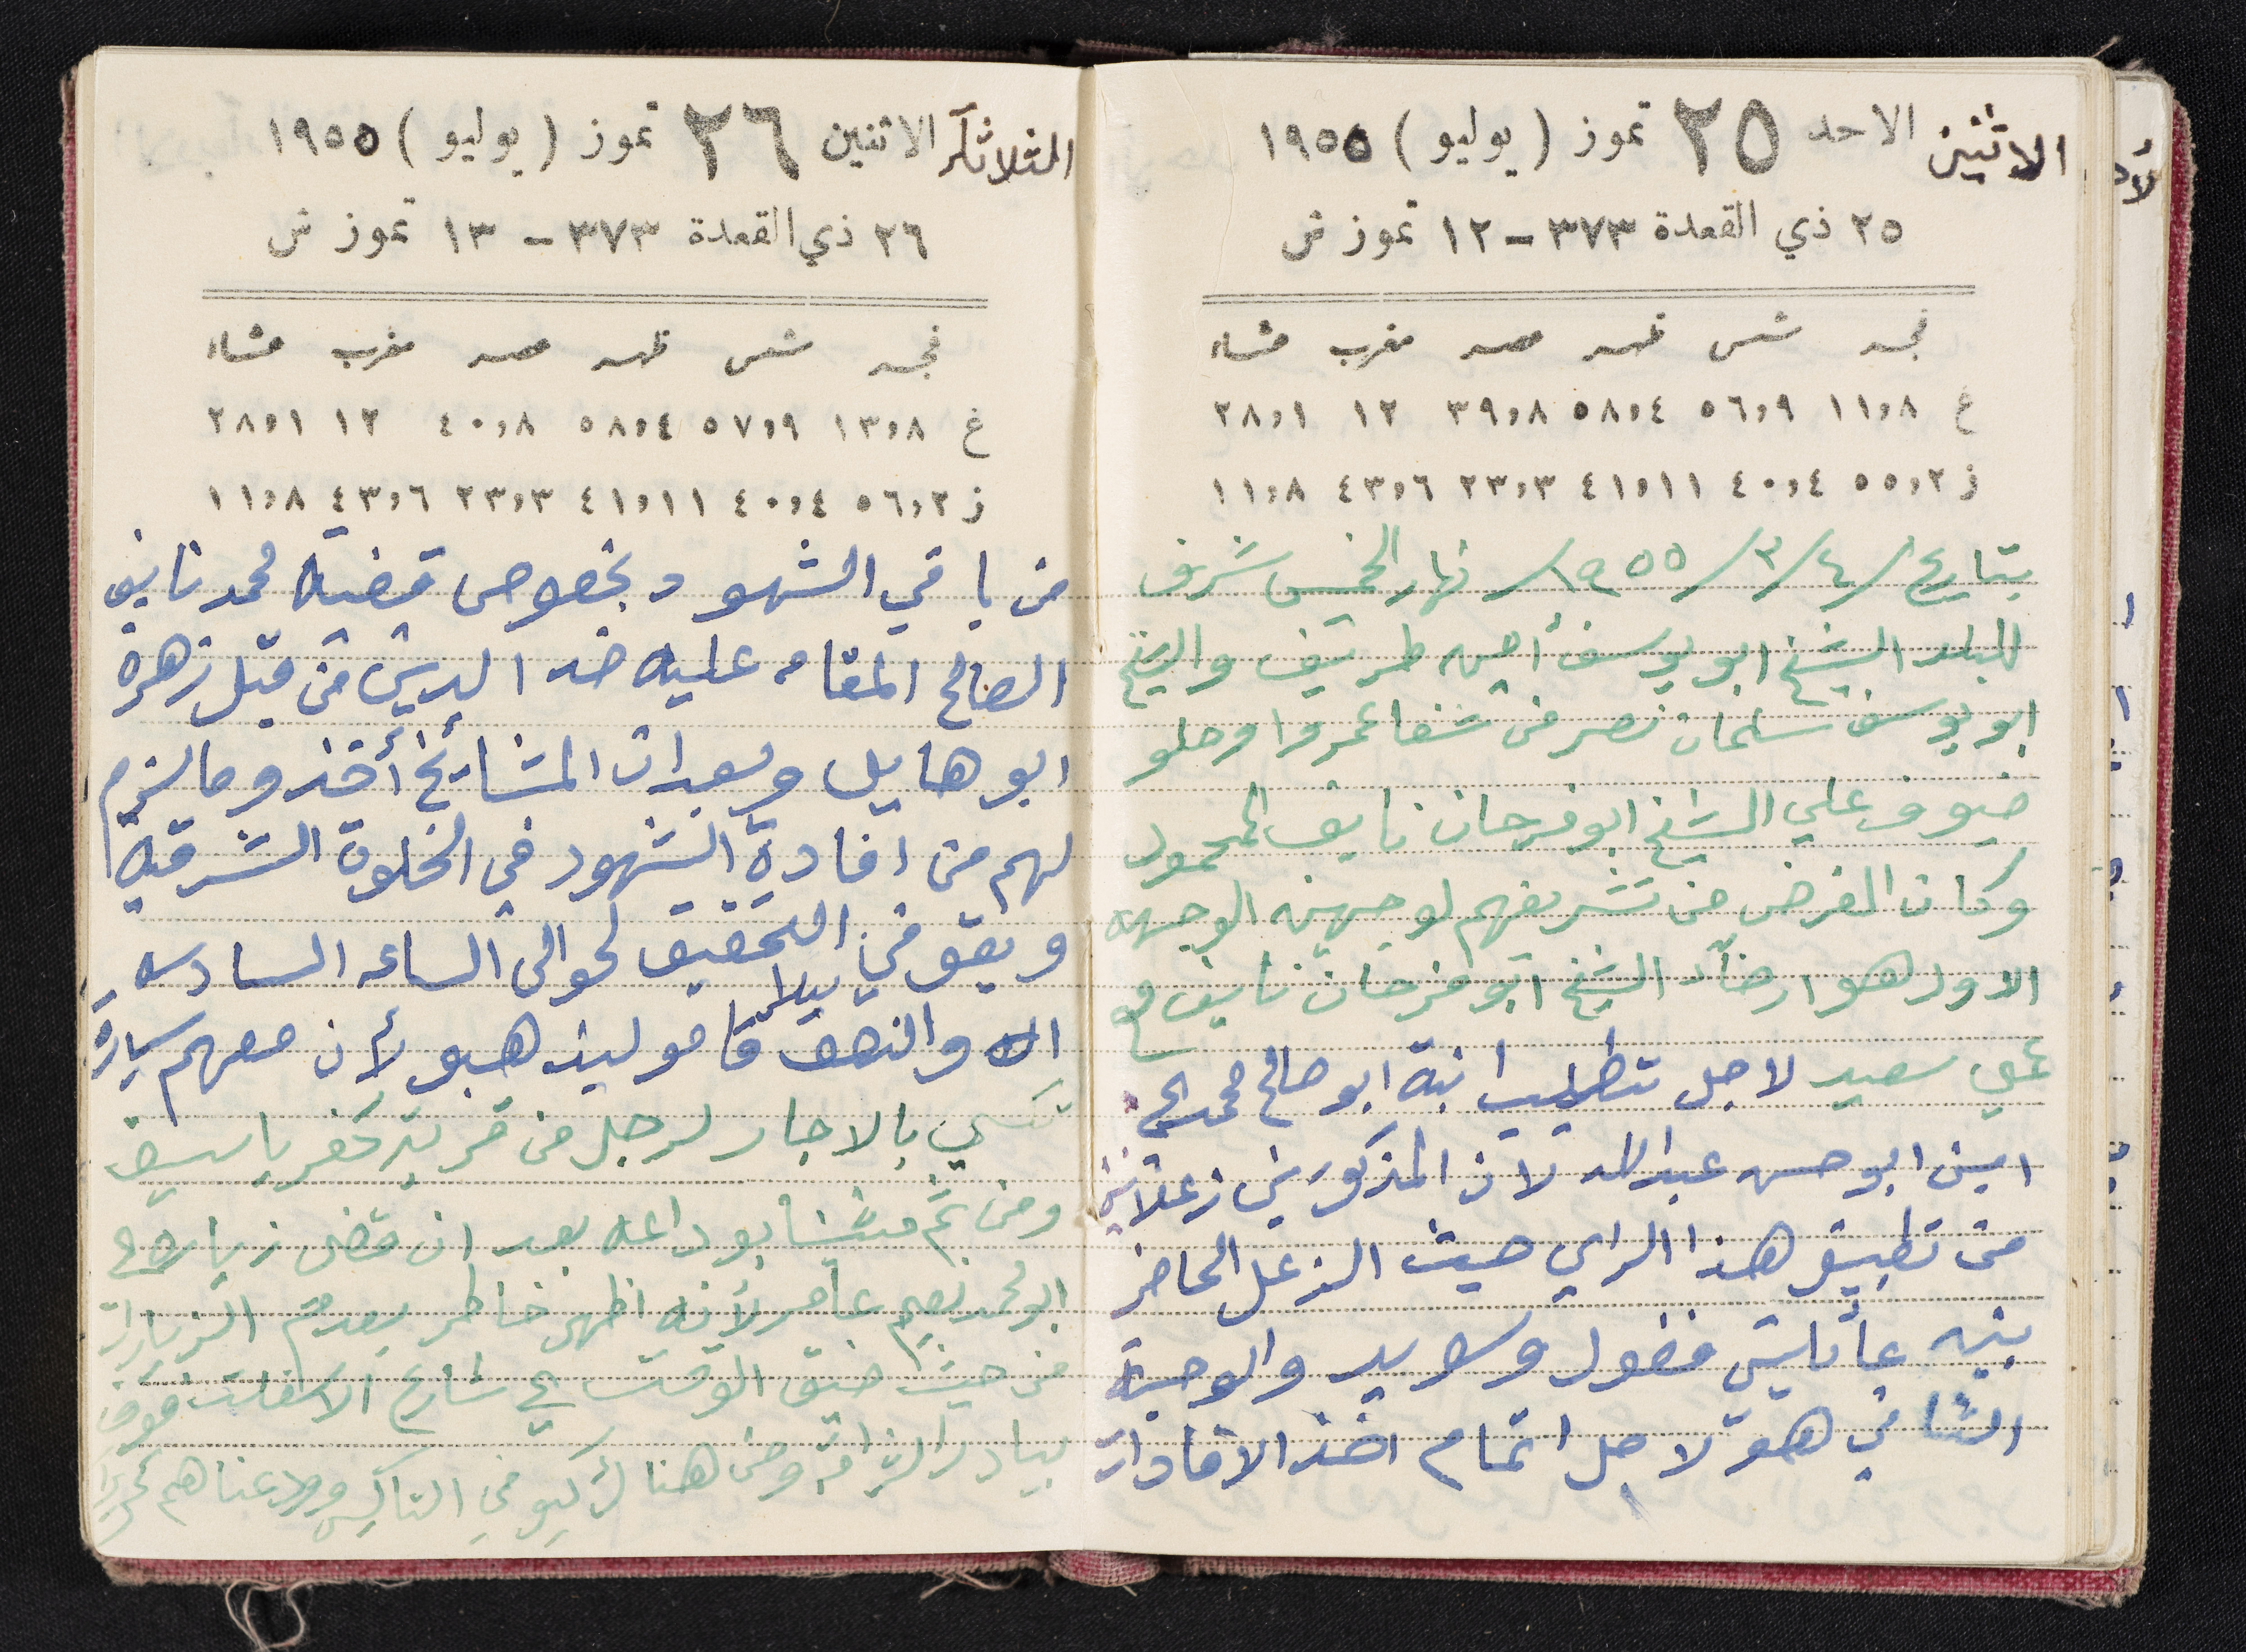 الاثنين الاحد ٢٥ تموز (يوليو) ١٩٥٥
٢٥ ذي القعدة ٣٧٣ - ١٢ تموز ش
فجر شمس ظهر عصر مغرب عشاء
غ ١١,٨ ٥٦,٩ ٥٨,٤ ٣٩,٨ ١٢ ٢٨,١
ز ٥٥,٢ ٤٠,٤ ٤١,١١ ٢٣,٣ ٤٣,٦ ١١,٨
بتاريخ ٤/٣/١٩٥٥ نهار الخميس شرف
للبلد الشيخ ابو يوسف أمين طريف والشيخ
ابو يوسف سلمان نصر من شفاعمرو وحلو
ضيوف علي الشيخ ابو فرحان نايف المحمود
وكان الغرض من تشريفهم لوجهين الوجهه
الاول هو ارضاء الشيخ ابو فرحان نايف مع
علي سعيد لاجل تطليب ابنة ابو صالح محمد الى
امين ابو حسن عبدالله لان المذكورين زعلانين
من تطبيق هذا الراي حيث الزعل الحاضر
بين عائلتي فضول وسويد والوجهة
الثاني هو لاجل اتمام اخذ الافادات
الثلاثاء الاثنين ٢٦ تموز (يوليو) ١٩٥٥
٢٦ ذي القعدة ٣٧٣ - ١٣ تموز ش
فجر شمس ظهر عصر مغرب عشاء
غ ١٣,٨ ٥٧,٩ ٥٨,٤ ٤٠,٨ ١٢ ٢٨,١
ز ٥٦,٢ ٤٠,٤ ٤١,١١ ٢٣,٣ ٤٣,٦ ١١,٨
من باقي الشهود بخصوص قضية محمد نايف
الصالح المقامه عليه ضد الدين من قبل زهرة
ابو هايل وبعد ان المشايخ أخذو ما لزم
لهم من افادة الشهود في الخلوة الشرقية
وبقو في التحقيق لحوالى الساعه السادسه
والنصف ليلا قامو ليذهبو لأن معهم سيارة
تكسي بالاجار لرجل من قرية كفر ياسيف
ومن ثم مشينا بوداعه بعد ان قضى زيارة
ابو محمد نصيم عامر لأنه اظهر خاطر بعدم الزيارات
من حيث ضيق الوقت الى شارع الاسفلت فوق
بيادر ومن هنا ركبو في التاكسي وودعناهم